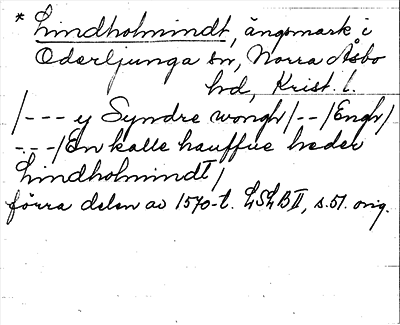 * Lindholmindt, ängsmark i
Oderljunga sn, Norra Åsbo
hd, Krist. l.
/--- y Syndre wongh/--/Engh/
---/En kalle hauffue heder
Lindholmindt/
förra delen av 1570-t. LSLB II, s. 51. orig.